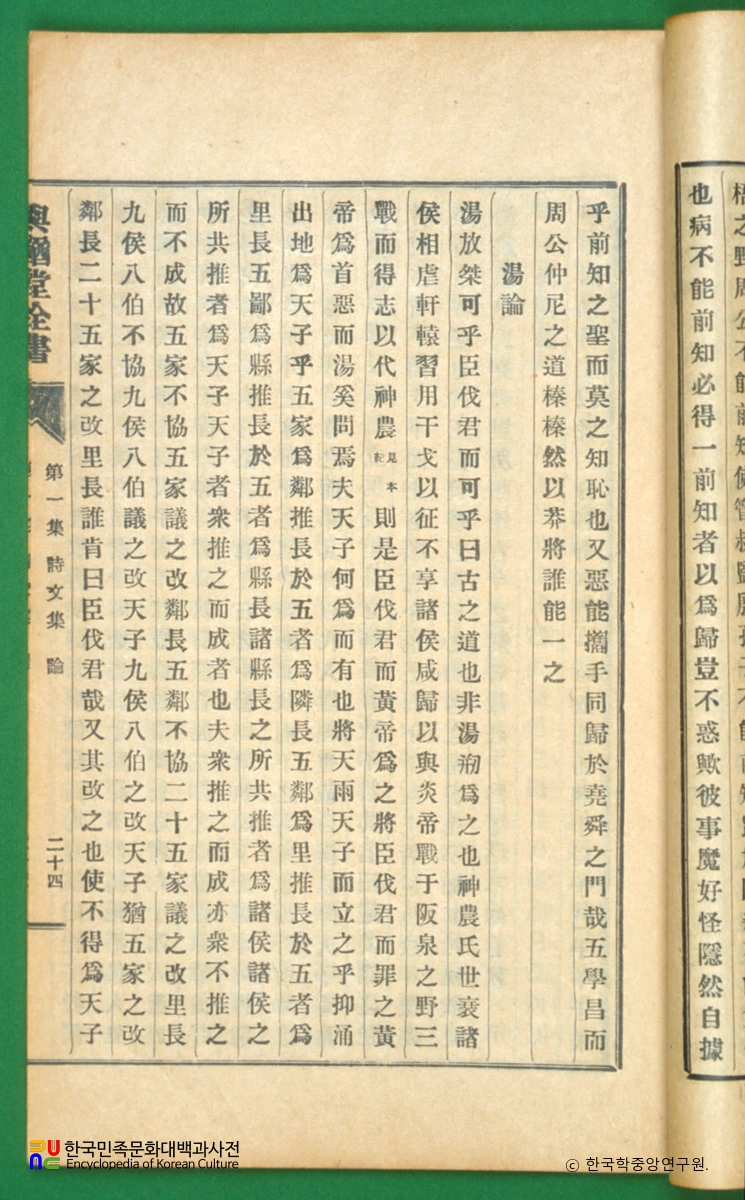 也病不能前知必得一前知者以爲歸豈不惑歟彼事魔好怪隱然自據
乎前知之聖而莫之知恥也又惡能攜手同歸於堯舜之門哉五學昌而
周公仲尼之道榛榛然以莽將誰能一之
湯論
湯放桀可乎臣伐君而可乎曰古之道也非湯刱爲之也神農氏世衰諸
侯相虐軒轅習用干戈以征不享諸侯咸歸以與炎帝戰于阪泉之野三
戰而得志以代神農見本紀則是臣伐君而黃帝爲之將臣伐君而罪之黃
帝爲首惡而湯奚問焉夫天子何爲而有也將天雨天子而立之乎抑涌
出地爲天子乎五家爲鄰推長於五者爲隣長五鄰爲里推長於五者爲
里長五鄙爲縣推長於五者爲縣長諸縣長之所共推者爲諸侯諸侯之
所共推者爲天子天子者衆推之而成者也夫衆推之而成亦衆不推之
而不成故五家不協五家議之改鄰長五鄰不協二十五家議之改里長
九侯八伯不協九侯八伯議之改天子九侯八伯之改天子猶五家之改
鄰長二十五家之改里長誰肯曰臣伐君哉又其改之也使不得爲天子
與猶堂全書
第一集 詩文集 論
二十四
한국민족문화대백과사전
Encyclopedia of Korean Culture
© 한국학중앙연구원.